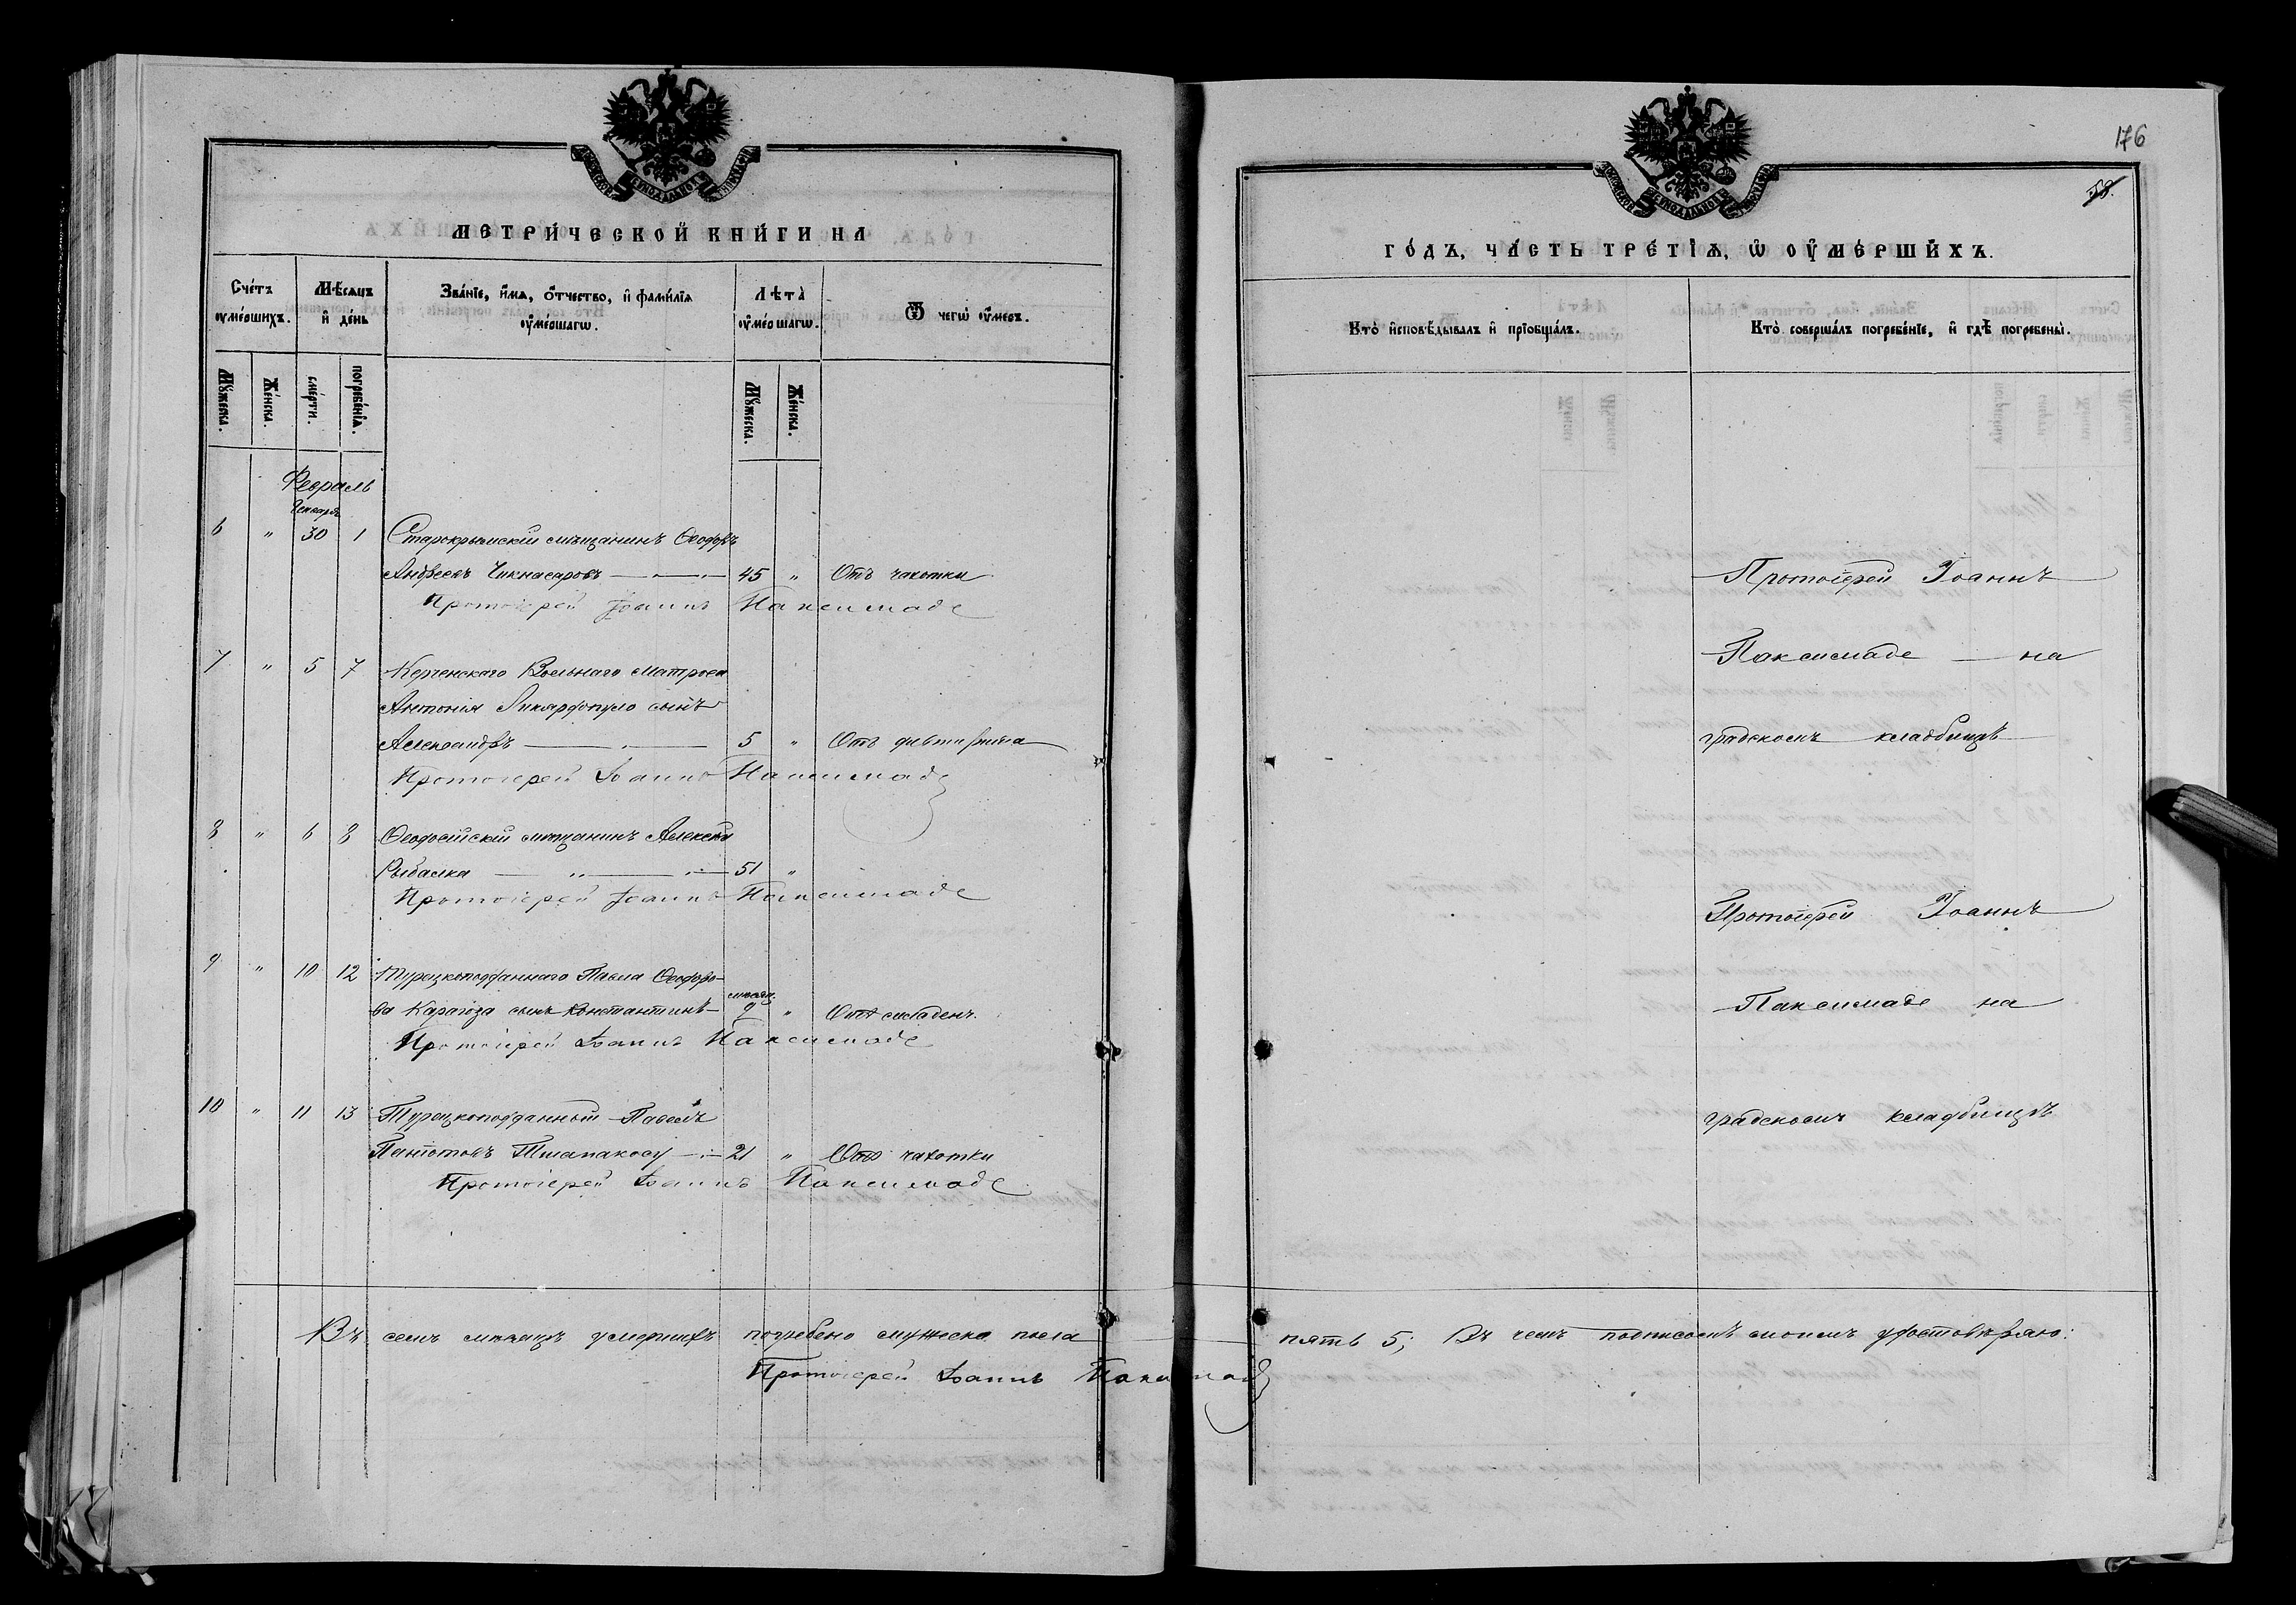 МЕТРИЧЕСКОЙ КНИГИ НА
Счетъ умершихъ.
Мѣсяцъ и день
Званіе, имя, отчество, и фамилія умершагѡ.
Лѣта умершагѡ.
Ѿ чегѡ умеръ.
Мужеска.
Женска.
смерти.
погребенія.
Мужеска.
Женска.
Февраль
Генваря
6 " 30 1 Старокрымскій мѣщанинъ Ѳеодоръ
Андреевъ Чикнасаровъ 45 " Отъ чахотки
Протоіерей Іоаннъ Паксимаде
7 " 5 7 Керченскаго Вольнаго Матроса
Антонія Ликардопуло сынъ
Александръ 5 " Отъ дифтерита
Протоіерей Іоаннъ Паксимаде
8 " 6 8 Ѳеодосійскій мѣщанинъ Алексѣй
Рыбалка 51 "
Протоіерей Іоаннъ Паксимаде
9 " 10 12 Турецкоподданнаго Павла Ѳеодоро-
ва Карагоза сынъ Константинъ мѣсяц. 9 " Отъ младенч.
Протоіерей Іоаннъ Паксимаде
10 " 11 13 Турецкоподданный Павелъ
21 " Отъ чахотки
Протоіерей Іоаннъ Паксимаде
Въ семъ мѣсяцѣ умершихъ погребено мужеска пола
Протоіерей Іоаннъ Паксимаде
176
ГОДЪ, ЧАСТЬ ТРЕТІЯ, Ѡ УМЕРШИХЪ.
Кто исповѣдывалъ и пріобщалъ.
Кто совершалъ погребеніе, и гдѣ погребены.
Протоіерей Іоаннъ
Паксимаде на
градскомъ кладбищѣ
Протоіерей Іоаннъ
Паксимаде на
градскомъ кладбищѣ
пять 5; Въ чемъ подписомъ моимъ удостовѣряю: